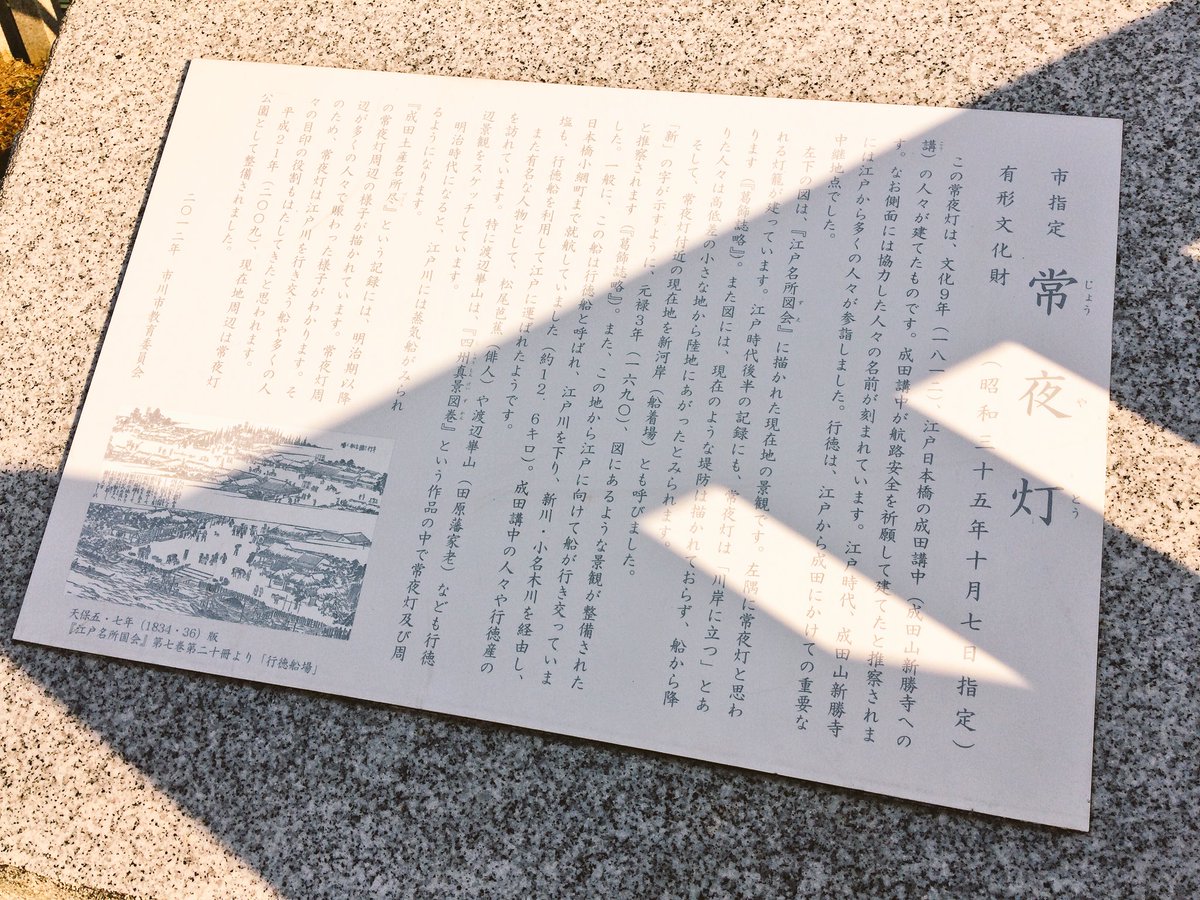 市指定
有形文化財
常夜灯
じょう や とう
(昭和三十五年十月七日指定)
この常夜灯は、文化9年(一八一二)、江戸日本橋の成田講中(成田山新勝寺への
講)の人々が建てたものです。成田講中が航路安全を祈願して建てたと推察されま
す。なお側面には協力した人々の名前が刻まれています。江戸時代、成田山新勝寺
には江戸から多くの人々が参詣しました。行徳は、江戸から成田にかけての重要な
中継地点でした。
左下の図は、『江戸名所図会』に描かれた現在地の景観です。左隅に常夜灯と思わ
れる灯籠が建っています。江戸時代後半の記録にも、常夜灯は「川岸に立つ」とあ
ります(『葛飾誌略』)。また図には、現在のような堤防は描かれておらず、船から降
りた人々は高低差の小さな地から陸地にあがったとみられます。
そして、常夜灯付近の現在地を新河岸(船着場)とも呼びました。
「新」の字が示すように、元禄3年(一六九〇)、図にあるような景観が整備された
と推察されます(『葛飾誌略』)。また、この地から江戸に向けて船が行き交っていま
した。一般に、この船は行徳船と呼ばれ、江戸川を下り、新川・小名木川を経由し、
日本橋小網町まで就航していました(約12.6キロ)。成田講中の人々や行徳産の
塩も、行徳船を利用して江戸に運ばれたようです。
また有名な人物として、松尾芭蕉(俳人)や渡辺崋山(田原藩家老)なども行徳
を訪れています。特に渡辺崋山は、『四州真景図巻』という作品の中で常夜灯及び周
辺景観をスケッチしています。
明治時代になると、江戸川には蒸気船がみられ
るようになります。
『成田土産名所尽』という記録には、明治期以降
の常夜灯周辺の様子が描かれています。常夜灯周
辺が多くの人々で賑わった様子がわかります。そ
のため、常夜灯は江戸川を行き交う船や多くの人
々の目印の役割もはたしてきたと思われます。
平成21年(二〇〇九)、現在地周辺は常夜灯
公園として整備されました。
二〇一二年 市川市教育委員会
天保五・七年(1834・36)版
『江戸名所図会』第七巻第二十冊より「行徳船場」